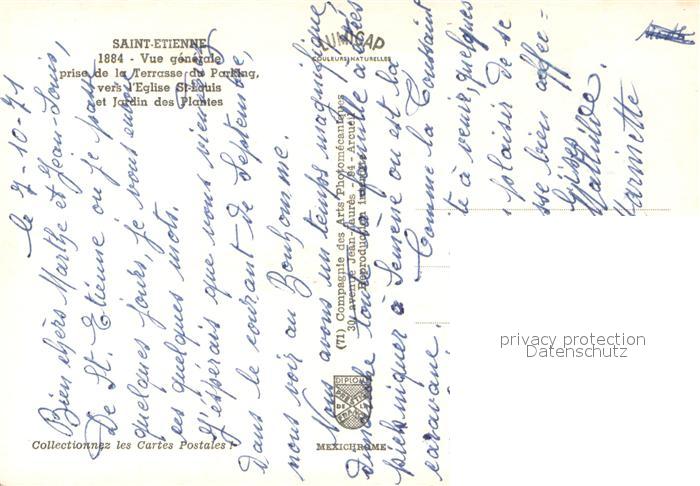 SAINT-ETIENNE
1884 - Vue générale
prise de la Terrasse du Parking,
vers l'Eglise St-Louis
et Jardin des Plantes
LUMICAP
COULEURS NATURELLES
le 7-10-71
Bien chers Marthe et Jean-Louis,
De St. Etienne où je passe
quelques jours, je vous envoie
ces quelques mots.
J'espérais que vous viendriez
dans le courant de Septembre,
nous voir au Bonhomme.
Nous avons un temps magnifique,
dimanche toute la famille allés
pickniquer à Semène où est la
caravane. Comme la Toussaint
te à venir, quelques
plaisir de se
sse bien affec=
Gises
Mathilde.
Marinette
(71) Compagnie des Arts Photomécaniques
30, avenue Jean-Jaurès - 94 - Arcueil
Reproduction interdite
DIPLOME
PRESTIGE
DE LA
FRANCE
MEXICHROME
Collectionnez les Cartes Postales !
privacy protection
Datenschutz